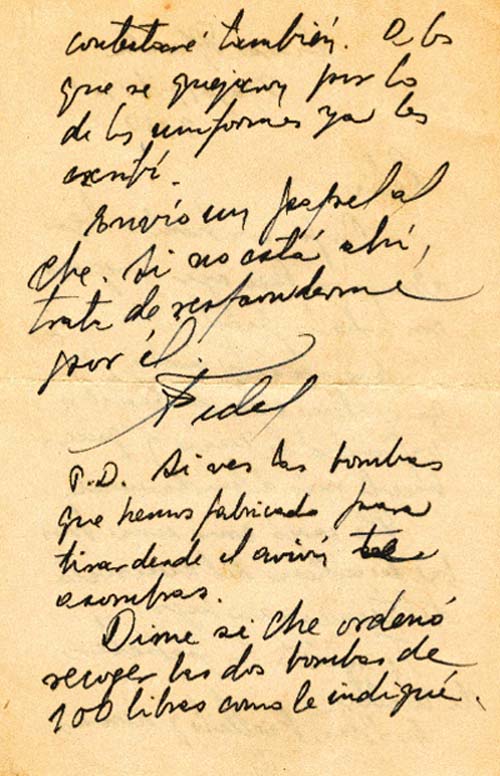 contestaré también. A los
que se quejaron por lo
de los uniformes ya les
escribí.
Envío un papel al
Che. Si no está ahí,
trata de responderme
por él.
Fidel
P.D. Si ves las bombas
que hemos fabricado para
tirar desde el avión te
asombras.
Dime si Che ordenó
recoger las dos bombas de
100 libras como le indiqué.